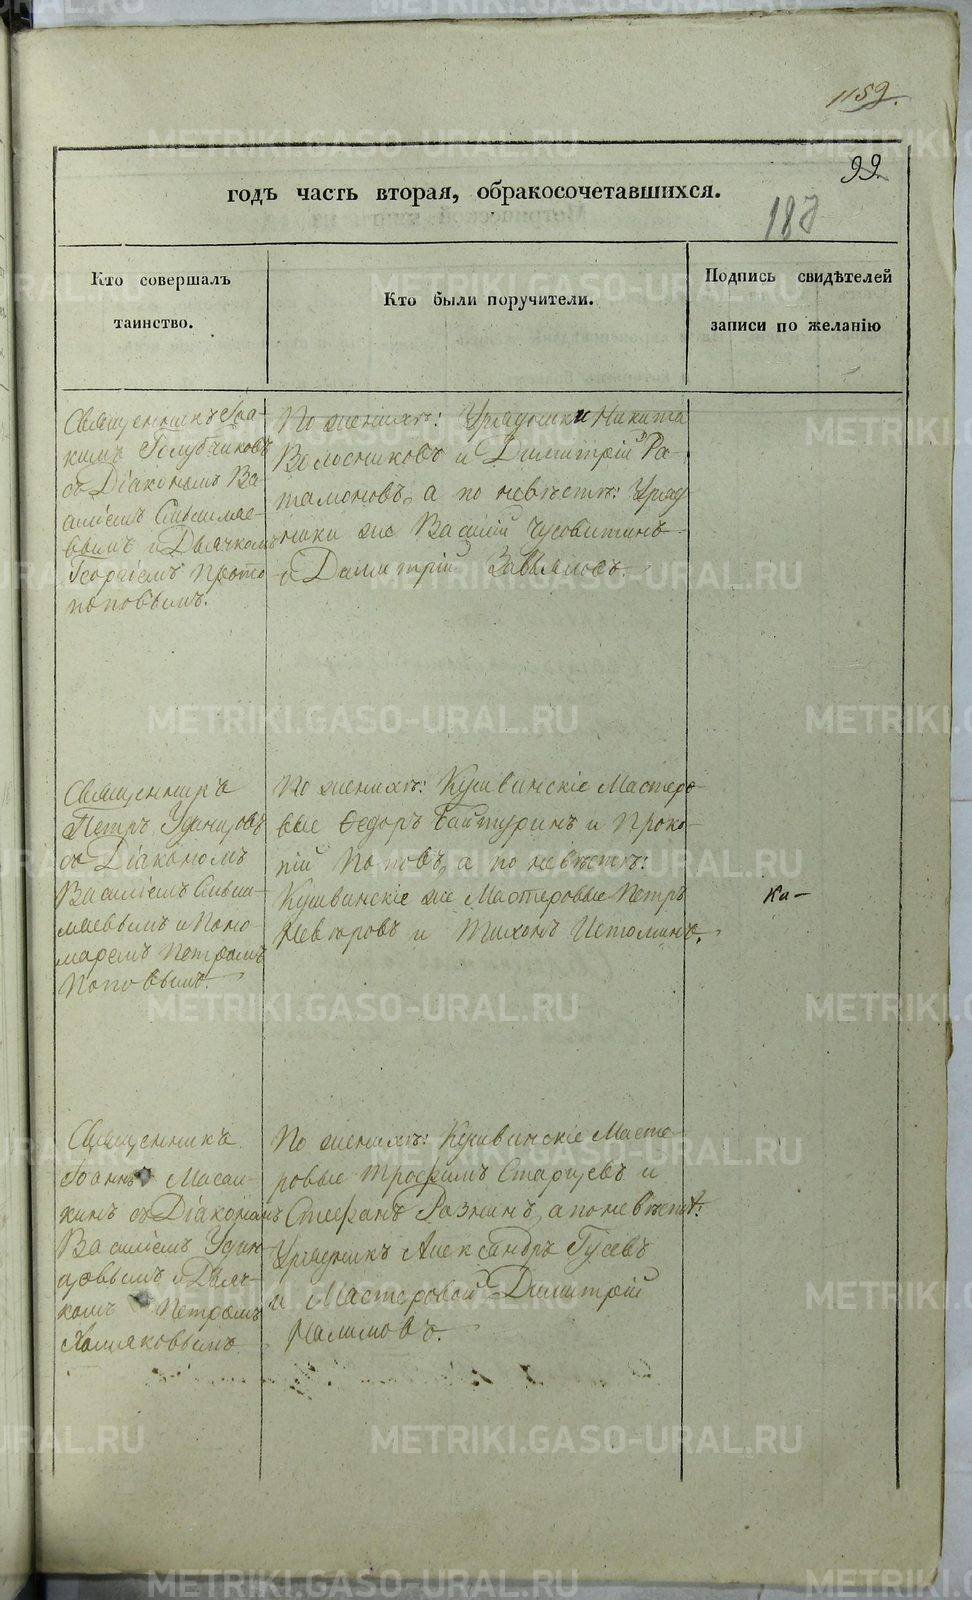 1159.
99
187
годъ часть вторая, обракосочетавшихся.
Кто совершалъ
таинство.
Кто были поручители.
Подпись свидѣтелей
записи по желанію
Священникъ Іоа-
кимъ Голубчиковъ
съ Діакономъ Ва-
силіемъ
и Дьячкомъ
Георгіемъ Прото
поповымъ.
По женихѣ: Урядники Никита
Волосниковъ и Димитрій
а по невѣстѣ: Уряд
ники же Василій Чусовитинъ
и Димитрій Завьяловъ.
Священникъ
Петръ Удинцовъ
съ Діакономъ
Василіемъ
и Поно
маремъ Петромъ
Поповымъ.
По женихѣ: Кушвинскіе Мастеро
вые Ѳедоръ Байтуринъ и Проко-
пій Поповъ, а по невѣстѣ:
Кушвинскіе же Мастеровые Петръ
и Тихонъ Истоминъ.
Ка-
Священникъ
Іоаннъ Масал-
кинъ съ Діакономъ
Василіемъ Удин
цовымъ и Дьяч-
комъ Петромъ
Хомяковымъ
По женихѣ: Кушвинскіе Масте
ровые Трофимъ Старцевъ и
Стефанъ Разнинъ, а по невѣстѣ:
Урядникъ Александръ Гусевъ
и Мастеровой Димитрій
Налимовъ.
METRIKI.GASO-URAL.RU